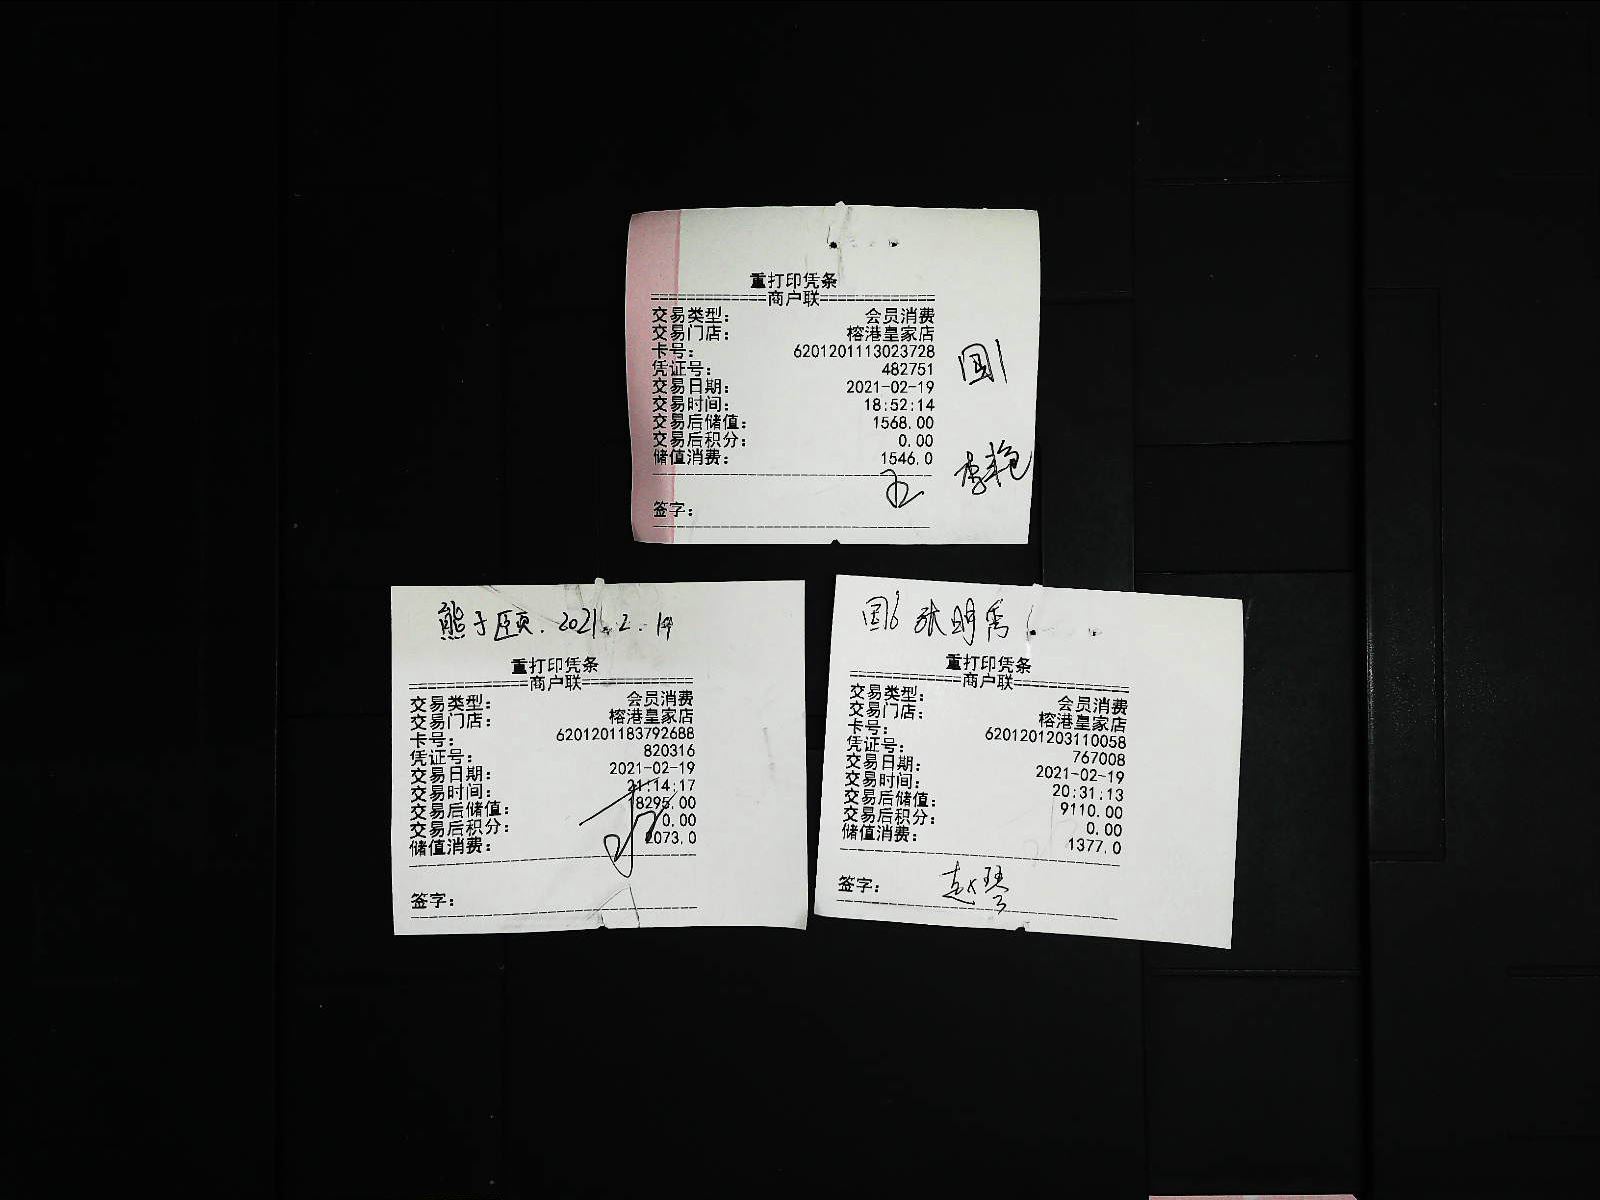 重打印凭条
==============商户联==============
交易类型： 会员消费
交易门店： 榕港皇家店
卡号： 6201201113023728
凭证号： 482751
交易日期： 2021-02-19
交易时间： 18:52:14
交易后储值： 1568.00
交易后积分： 0.00
储值消费： 1546.0
国1
李艳
签字：
熊子颐.2021.2.19
重打印凭条
==============商户联==============
交易类型： 会员消费
交易门店： 榕港皇家店
卡号： 6201201183792688
凭证号： 820316
交易日期： 2021-02-19
交易时间： 21:14:17
交易后储值： 8295.00
交易后积分： 0.00
储值消费： 2073.0
签字：
国6 张明秀
重打印凭条
==============商户联==============
交易类型： 会员消费
交易门店： 榕港皇家店
卡号： 6201201203110058
凭证号： 767008
交易日期： 2021-02-19
交易时间： 20:31:13
交易后储值： 9110.00
交易后积分： 0.00
储值消费： 1377.0
签字： 赵琴